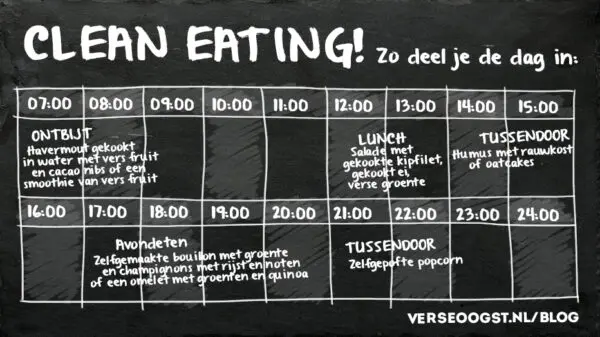 CLEAN EATING! Zo deel je de dag in:
07:00 08:00 09:00 10:00 11:00 12:00 13:00 14:00 15:00
ONTBIJT
Havermout gekookt
in water met vers fruit
en cacao nibs of een
smoothie van vers fruit
LUNCH
Salade met
gekookte kipfilet,
gekookt ei,
verse groente
TUSSENDOOR
Humus met rauwkost
of oatcakes
16:00 17:00 18:00 19:00 20:00 21:00 22:00 23:00 24:00
Avondeten
Zelfgemaakte bouillon met groente
en champignons met rijst en noten
of een omelet met groenten en quinoa
TUSSENDOOR
Zelfgepofte popcorn
VERSEOOGST.NL/BLOG